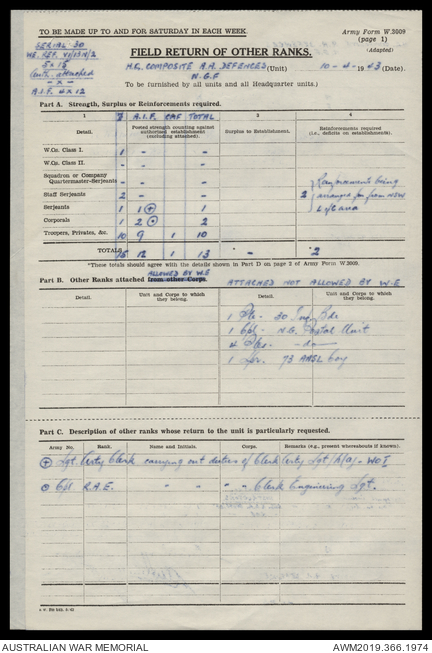 TO BE MADE UP TO AND FOR SATURDAY IN EACH WEEK.
Army Form W.3009
(page 1)
(Adapted)
SERIAL 30
FIELD RETURN OF OTHER RANKS.
H.Q. COMPOSITE A.A. DEFENCES (Unit) 10-4-1943 (Date).
N.G.F
A.I.F. 4 x 12
To be furnished by all units and all Headquarter units.)
Part A. Strength, Surplus or Reinforcements required.
1 2 A.I.F. CMF TOTAL 3 4
Detail. Posted strength counting against authorised establishment (including attached). Surplus to Establishment. Reinforcements required (i.e., deficits on establishments).
W.Os. Class I. 1 - - -
W.Os. Class II. - - -
Squadron or Company
Quartermaster-Serjeants - - -
Staff Serjeants 2 - - - 2
Serjeants 1 1 ⊕ 1
Corporals 2 2 ⊙ 2
Troopers, Privates, &c. 10 9 1 10
TOTALS 12 1 13 - 2
*These totals should agree with the details shown in Part D on page 2 of Army Form W.3009.
ALLOWED BY W.E
Part B. Other Ranks attached from other Corps. ATTACHED NOT ALLOWED BY W.E
Detail. Unit and Corps to which they belong. Detail. Unit and Corps to which they belong.
1 Pte - 30 Inf Bde
1 Cpl - N.G. Postal Unit
4 - do -
1 73 AASL Coy
Part C. Description of other ranks whose return to the unit is particularly requested.
Army No. Rank. Name and Initials. Corps. Remarks (e.g., present whereabouts if known).
⊕ Sgt Arty Clerk carrying out duties of Clerk Arty Sgt WOI
⊙ Cpl R.A.E. " " " " Clerk Engineering Sgt.
AUSTRALIAN WAR MEMORIAL
AWM2019.366.1974